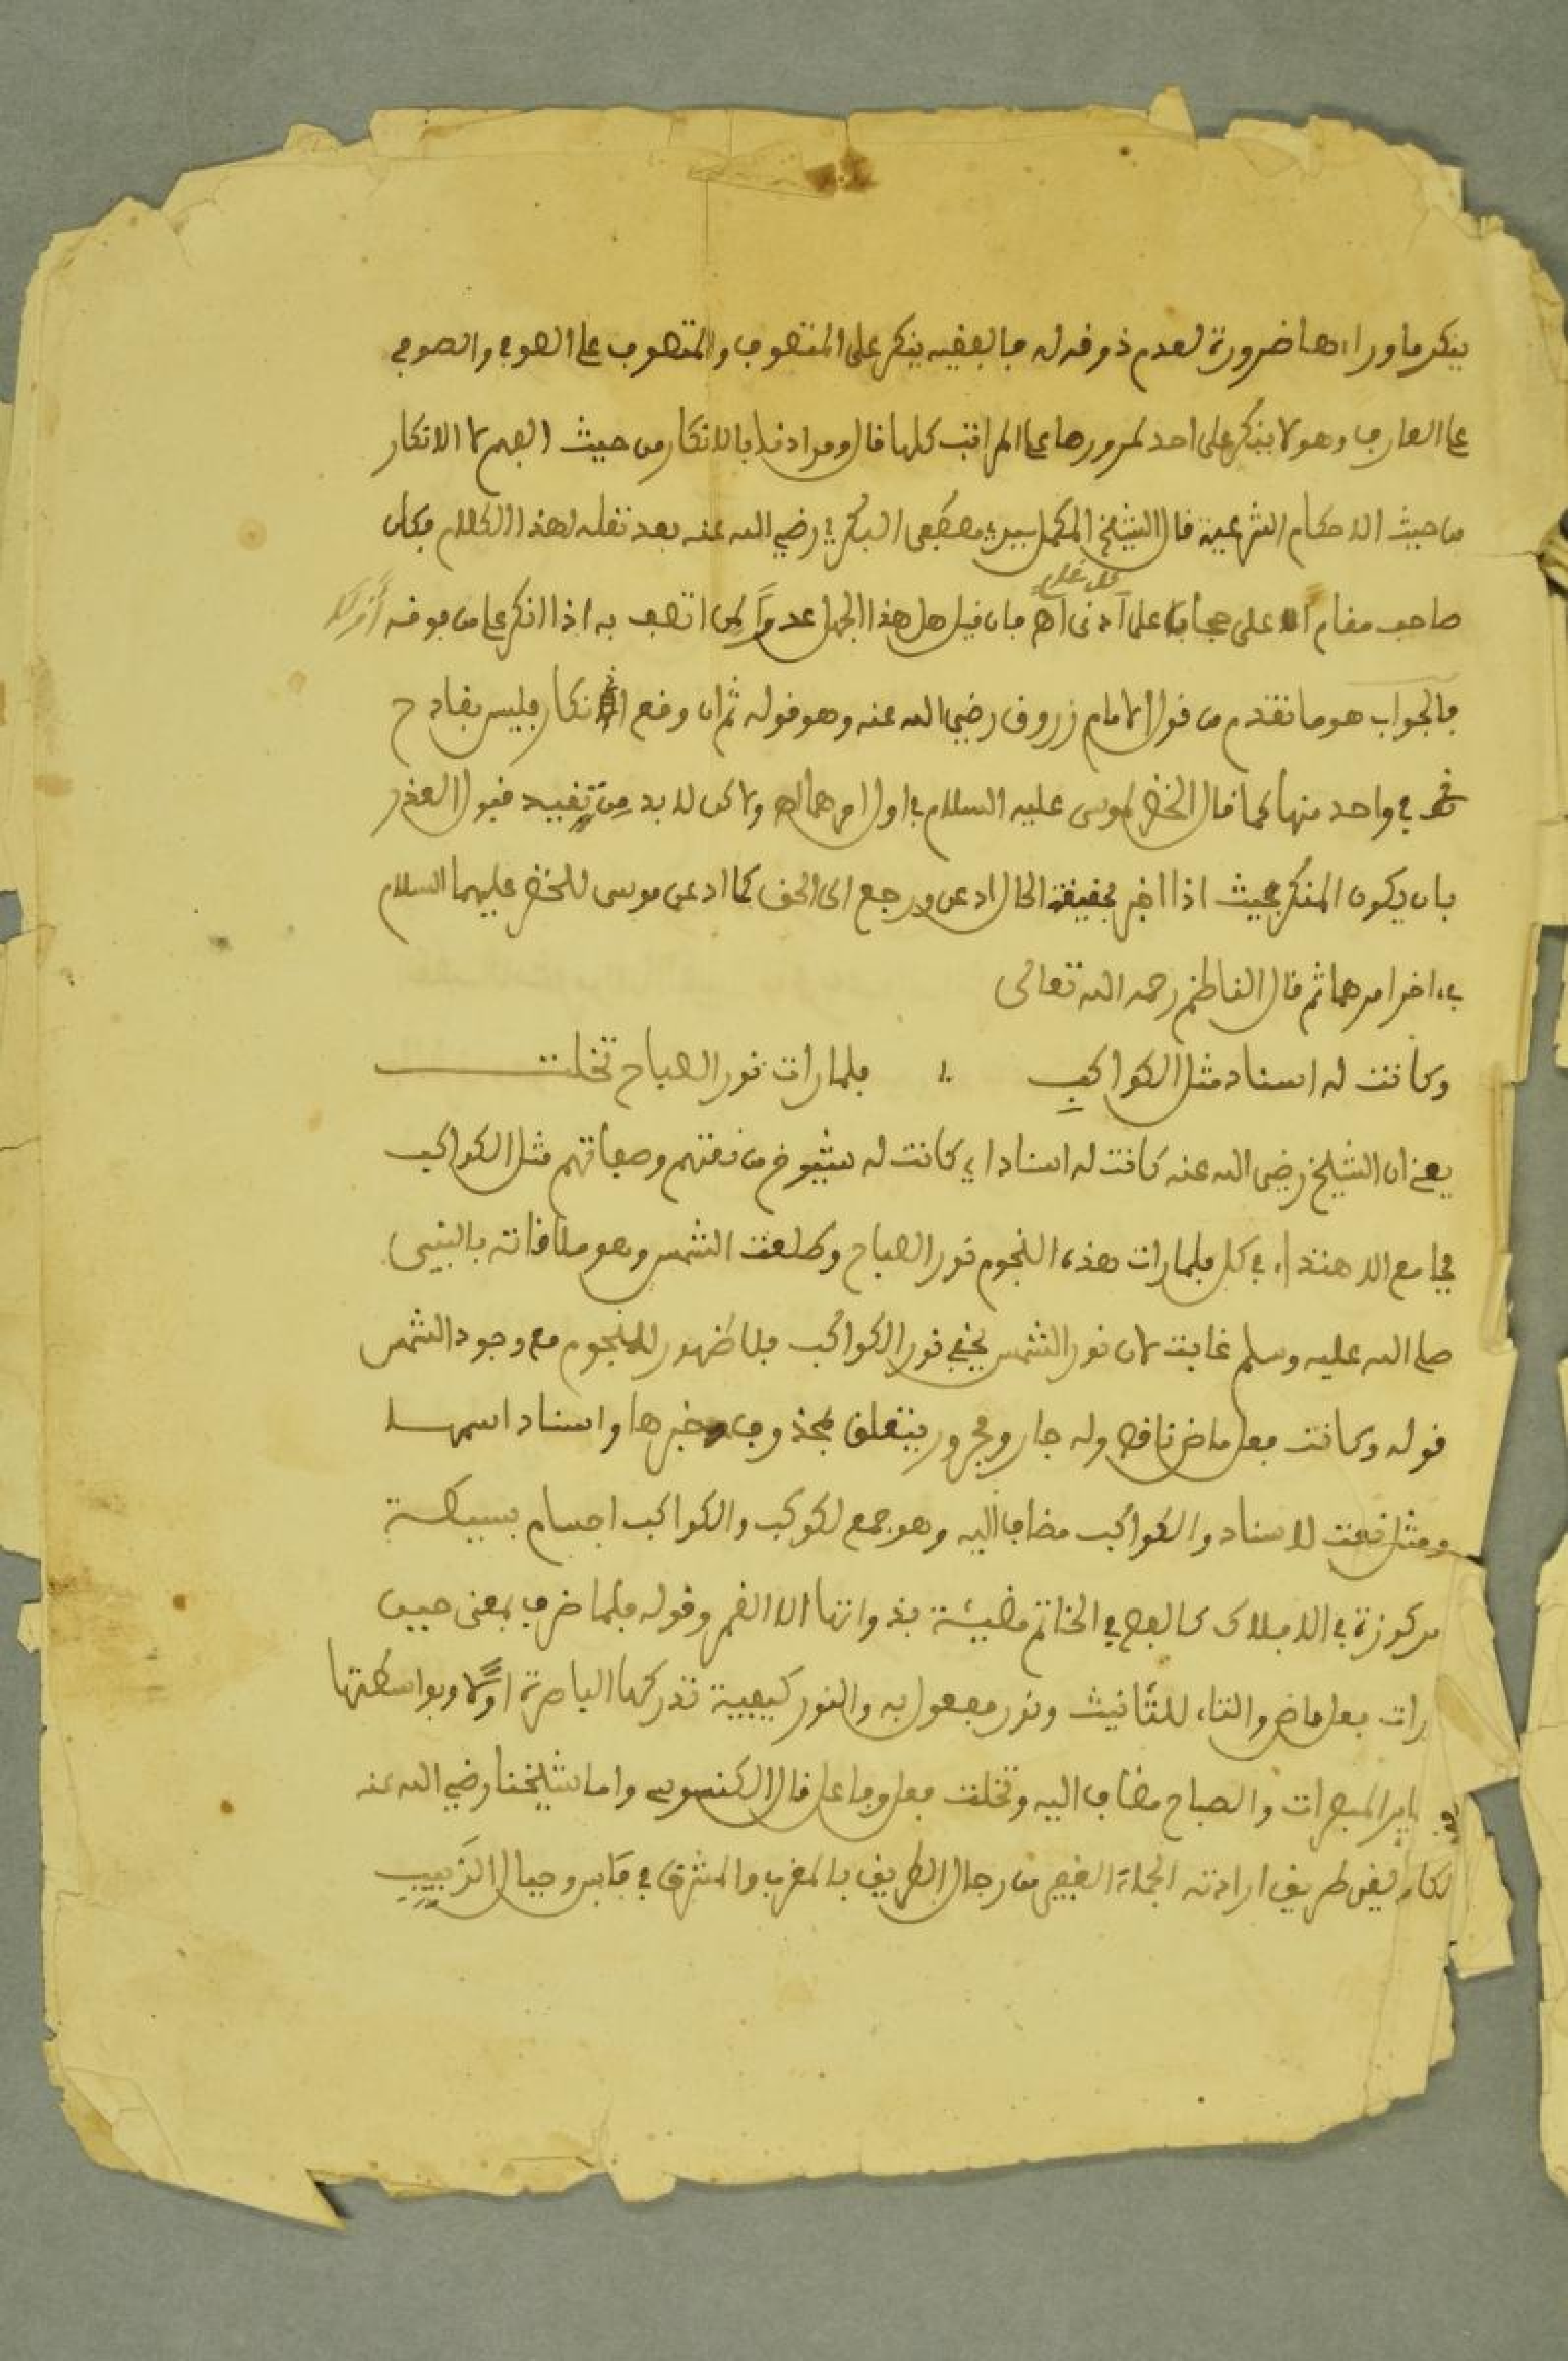 ينكر ما وراءها ضرورة لعدم ذوقه له فالفقيه ينكر على المتصوف والمتصوف على الصوفي والصوفي
على العارف وهو لا ينكر على احد لمرورها على المراتب كلها قال ومرادنا بالانكار من حيث الفهم لا الانكار
من حيث الاحكام الشرعية قال الشيخ المكمل سيدي مصطفى البكري رضي الله عنه بعد نقله لهذا الكلام فكان
صاحب مقام اعلى حجابا على ادنى اهـ فان قيل هل هذا الجهل عذر لمن اتصف به اذا انكر على من فوقه
فالجواب هو ما تقدم من قول الامام زروق رضي الله عنه وهو قوله ثم ان وقع انكار فليس بقادح
في واحد منها كما قال الخضر لموسى عليه السلام في اول امرهما اهـ ولاكن لا بد من تقييد قبول العذر
بان يكون المنكر بحيث اذا اخبر بحقيقة الحال اذعن ورجع الى الحق كما اذعن موسى للخضر عليهما السلام
في ءاخر امرهما ثم قال الناظم رحمه الله تعالى
وكانت له اسناد مثل الكواكب فلما رات نور الصباح تخلت
يعني ان الشيخ رضي الله عنه كانت له اسناد اي كانت له شيوخ من نعتهم وصفاتهم مثل الكواكب
بجامع الاهتداء في كل فلما رات هذه النجوم نور الصباح وطلعت الشمس وهو ملاقاته بالنبي
صلى الله عليه وسلم غابت لان نور الشمس يخفي نور الكواكب فلا ظهور للنجوم مع وجود الشمس
قوله وكانت فعل ماض ناقص وله جار ومجرور يتعلق بمحذوف خبرها واسناد اسمها
ومثل نعت لاسناد والكواكب مضاف اليه وهو جمع لكوكب والكواكب اجسام بسيطة
مركوزة في الافلاك كالفص في الخاتم مضيئة بذواتها الا القمر وقوله فلما ضرف بمعنى حين
رات فعل ماض والتاء للتانيث ونور مفعول به والنور كيفية تدركها الباصرة اولا وبواسطتها
المبصرات والصباح مضاف اليه وتخلت فعل وفاعل قال الكنسوسي واما شيخنا رضي الله عنه
لقي طريق ارادته الجلة الغفير من رجال الطريق بالمغرب والمشرق في فاس وجبال الزبيب